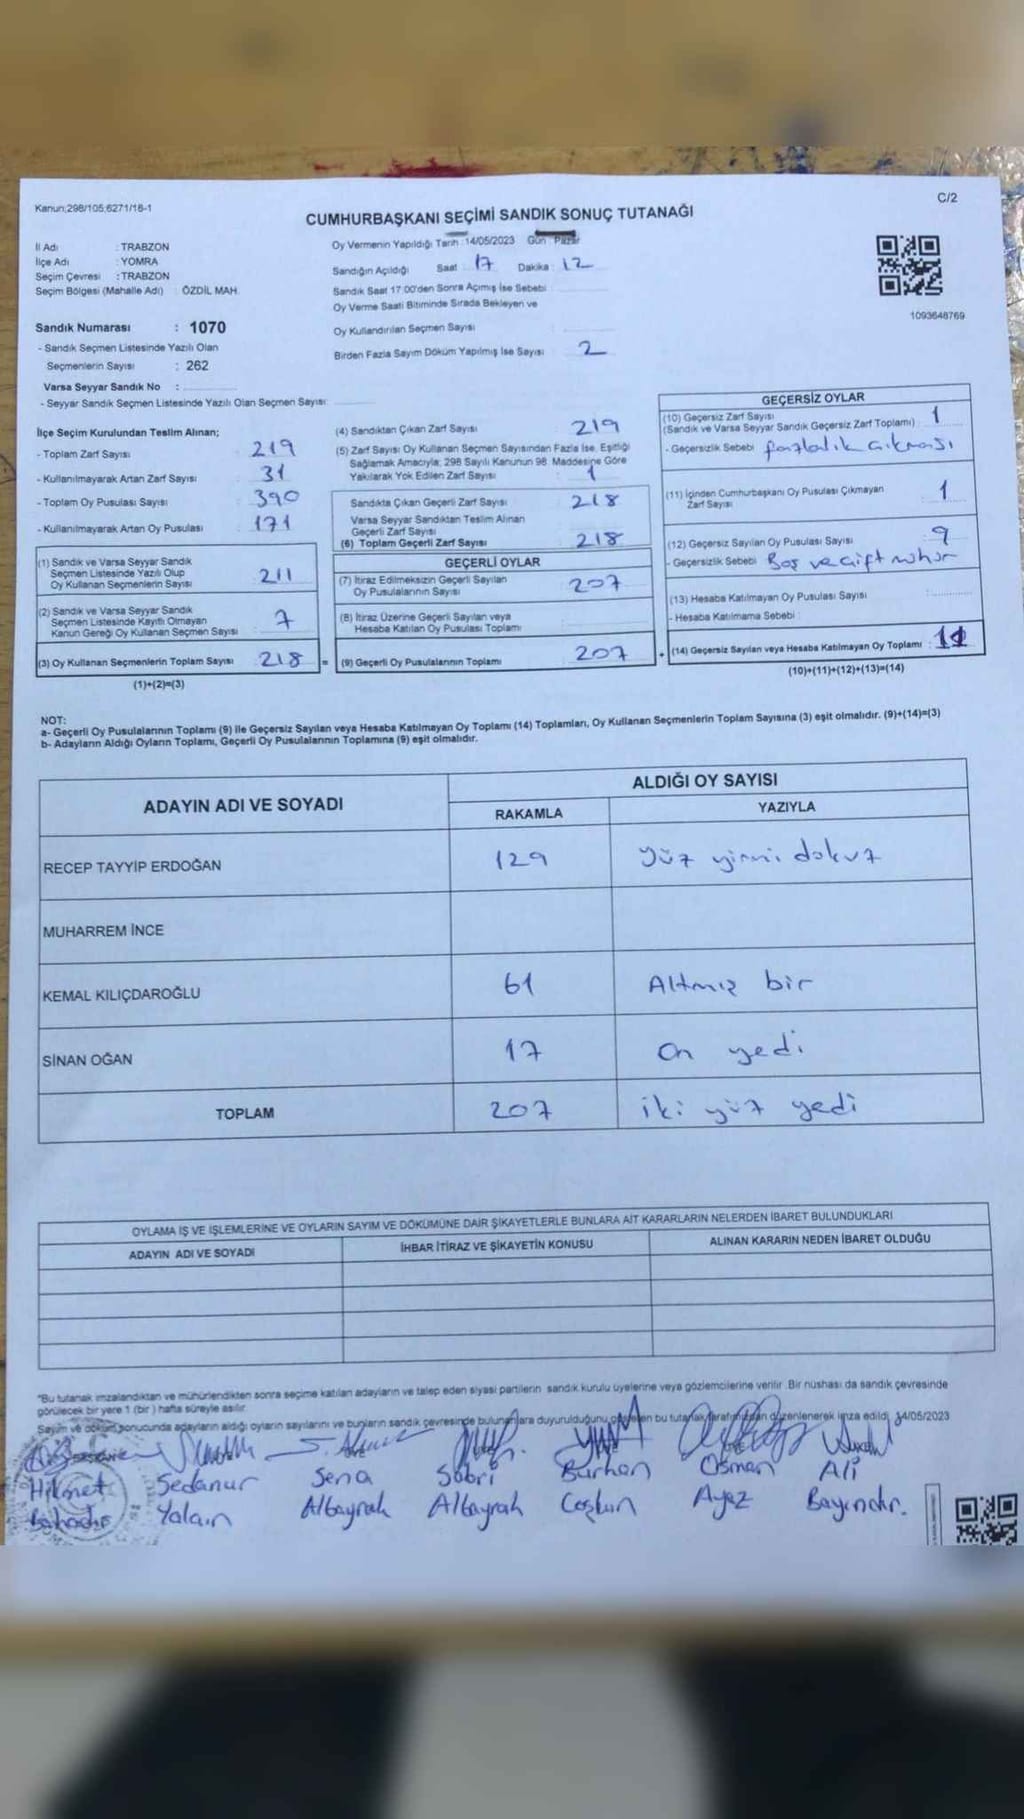 Kanun;298/105;6271/18-1
C/2
CUMHURBAŞKANI SEÇİMİ SANDIK SONUÇ TUTANAĞI
İl Adı : TRABZON
İlçe Adı : YOMRA
Seçim Çevresi : TRABZON
Seçim Bölgesi (Mahalle Adı) : ÖZDİL MAH.
Oy Vermenin Yapıldığı Tarih :14/05/2023 Gün : Pazar
Sandığın Açıldığı Saat : 17 Dakika : 12
Sandık Saat 17:00'den Sonra Açımış İse Sebebi :
Oy Verme Saati Bitiminde Sırada Bekleyen ve
Oy Kullandırılan Seçmen Sayısı :
Birden Fazla Sayım Döküm Yapılmış İse Sayısı : 2
1093648769
Sandık Numarası : 1070
- Sandık Seçmen Listesinde Yazılı Olan
Seçmenlerin Sayısı : 262
Varsa Seyyar Sandık No :
- Seyyar Sandık Seçmen Listesinde Yazılı Olan Seçmen Sayısı:
İlçe Seçim Kurulundan Teslim Alınan;
- Toplam Zarf Sayısı : 219
- Kullanılmayarak Artan Zarf Sayısı : 31
- Toplam Oy Pusulası Sayısı : 390
- Kullanılmayarak Artan Oy Pusulası : 171
(1) Sandık ve Varsa Seyyar Sandık
Seçmen Listesinde Yazılı Olup
Oy Kullanan Seçmenlerin Sayısı : 211
(2) Sandık ve Varsa Seyyar Sandık
Seçmen Listesinde Kayıtlı Olmayan
Kanun Gereği Oy Kullanan Seçmen Sayısı : 7
(3) Oy Kullanan Seçmenlerin Toplam Sayısı : 218
(1)+(2)=(3)
(4) Sandıktan Çıkan Zarf Sayısı : 219
(5) Zarf Sayısı Oy Kullanan Seçmen Sayısından Fazla İse, Eşitliği
Sağlamak Amacıyla, 298 Sayılı Kanunun 98. Maddesine Göre
Yakılarak Yok Edilen Zarf Sayısı : 1
Sandıkta Çıkan Geçerli Zarf Sayısı : 218
Varsa Seyyar Sandıktan Teslim Alınan
Geçerli Zarf Sayısı
(6) Toplam Geçerli Zarf Sayısı : 218
GEÇERLİ OYLAR
(7) İtiraz Edilmeksizin Geçerli Sayılan
Oy Pusulalarının Sayısı : 207
(8) İtiraz Üzerine Geçerli Sayılan veya
Hesaba Katılan Oy Pusulası Toplamı :
= (9) Geçerli Oy Pusulalarının Toplamı : 207
GEÇERSİZ OYLAR
(10) Geçersiz Zarf Sayısı : 1
(Sandık ve Varsa Seyyar Sandık Geçersiz Zarf Toplamı)
- Geçersizlik Sebebi : fazlalık çıkması
(11) İçinden Cumhurbaşkanı Oy Pusulası Çıkmayan
Zarf Sayısı : 1
(12) Geçersiz Sayılan Oy Pusulası Sayısı : 9
- Geçersizlik Sebebi : Boş ve çift mühür
(13) Hesaba Katılmayan Oy Pusulası Sayısı :
- Hesaba Katılmama Sebebi :
+ (14) Geçersiz Sayılan veya Hesaba Katılmayan Oy Toplamı : 11
(10)+(11)+(12)+(13)=(14)
NOT:
a- Geçerli Oy Pusulalarının Toplamı (9) ile Geçersiz Sayılan veya Hesaba Katılmayan Oy Toplamı (14) Toplamları, Oy Kullanan Seçmenlerin Toplam Sayısına (3) eşit olmalıdır. (9)+(14)=(3)
b- Adayların Aldığı Oyların Toplamı, Geçerli Oy Pusulalarının Toplamına (9) eşit olmalıdır.
ADAYIN ADI VE SOYADI
ALDIĞI OY SAYISI
RAKAMLA YAZIYLA
RECEP TAYYİP ERDOĞAN 129 Yüz yirmi dokuz
MUHARREM İNCE
KEMAL KILIÇDAROĞLU 61 Altmış bir
SİNAN OĞAN 17 On yedi
TOPLAM 207 iki yüz yedi
OYLAMA İŞ VE İŞLEMLERİNE VE OYLARIN SAYIM VE DÖKÜMÜNE DAİR ŞİKAYETLERLE BUNLARA AİT KARARLARIN NELERDEN İBARET BULUNDUKLARI
ADAYIN ADI VE SOYADI İHBAR İTİRAZ VE ŞİKAYETİN KONUSU ALINAN KARARIN NEDEN İBARET OLDUĞU
*Bu tutanak imzalandıktan ve mühürlendikten sonra seçime katılan adayların ve talep eden siyasi partilerin sandık kurulu üyelerine veya gözlemcilerine verilir. Bir nüshası da sandık çevresinde
görülecek bir yere 1 (bir) hafta süreyle asılır.
Sayım ve döküm sonucunda adayların aldığı oyların sayılarını ve bunların sandık çevresinde bulunanlara duyurulduğunu gösteren bu tutanak tarafımızdan düzenlenerek imza edildi. 14/05/2023
Hikmet Sedanur Sena Sabri Burhan Osman Ali
Bahadır Yalçın Albayrak Albayrak Coşkun Ayaz Bayındır.